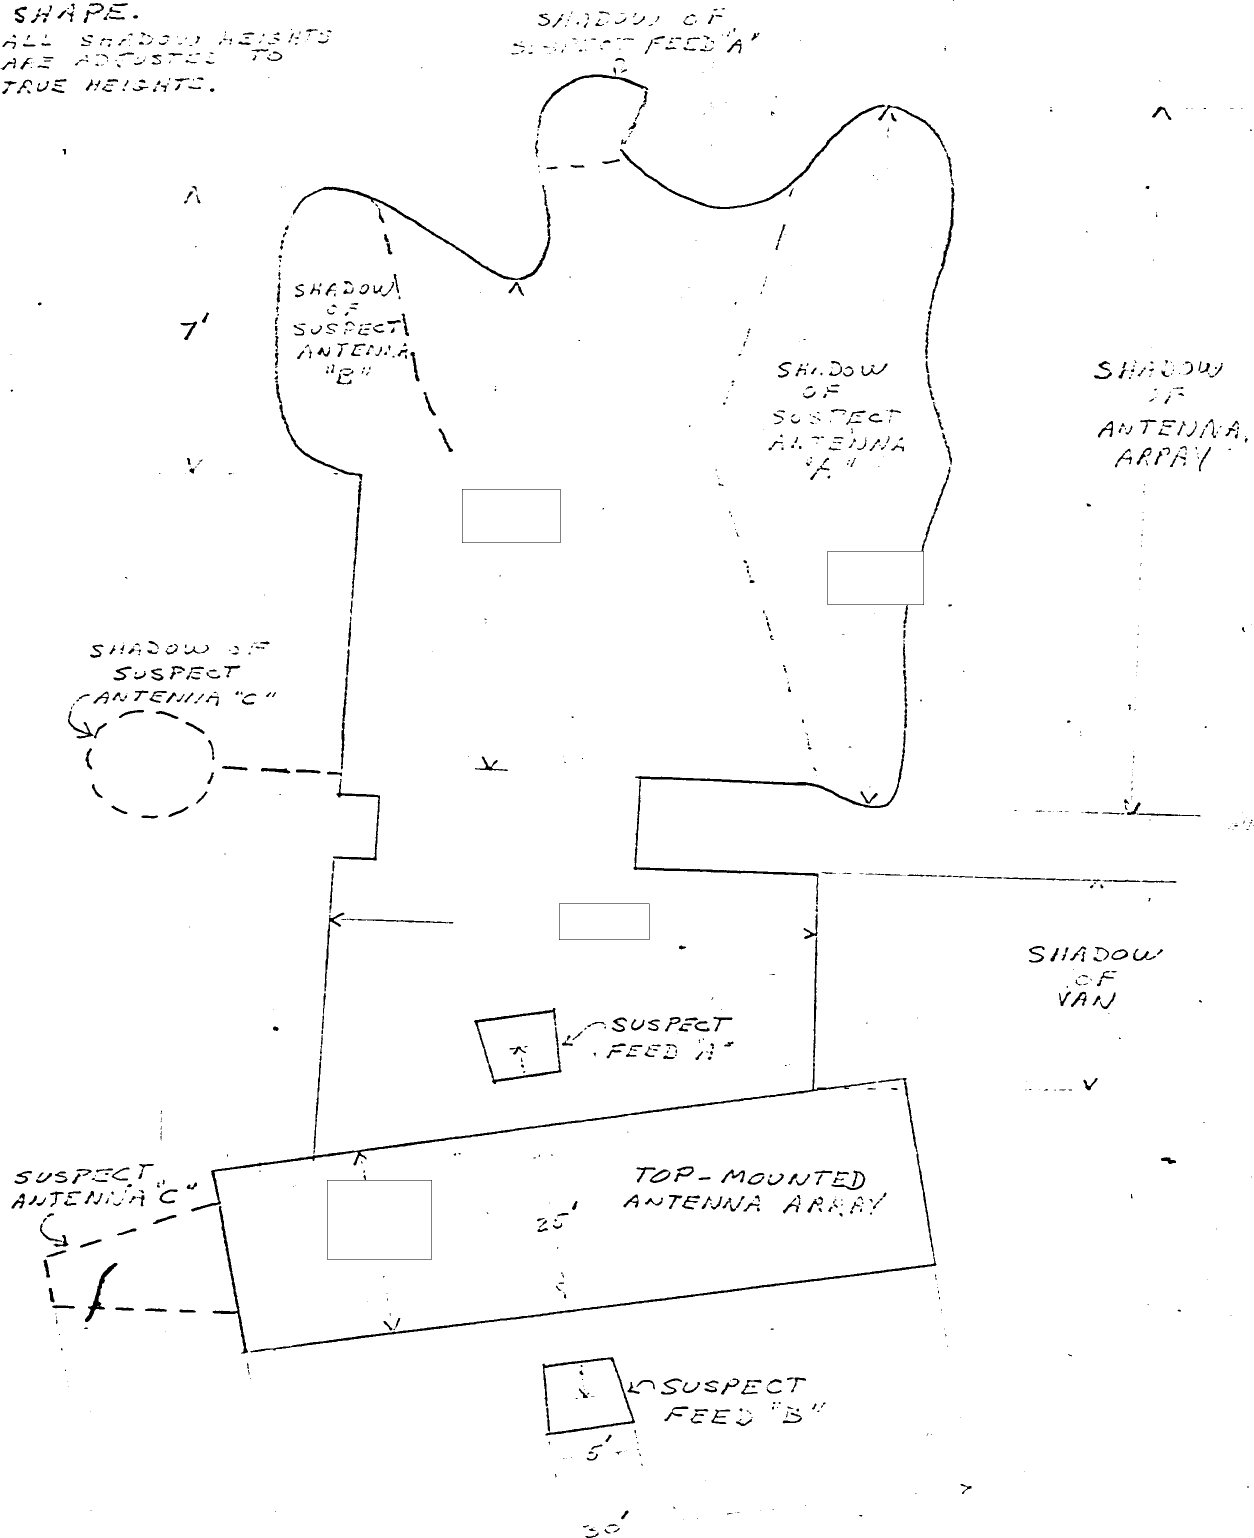 SHAPE.
ALL SHADOW HEIGHTS
ARE ADJUSTED TO
TRUE HEIGHTS.
SHADOW OF
SUSPECT FEED "A"
7'
SHADOW
OF
SUSPECT
ANTENNA
"B"
SHADOW
OF
SUSPECT
ANTENNA
"A"
SHADOW
OF
ANTENNA
ARRAY
SHADOW OF
SUSPECT
ANTENNA "C"
SHADOW
OF
VAN
SUSPECT
FEED "A"
SUSPECT
ANTENNA "C"
TOP-MOUNTED
ANTENNA ARRAY
25'
SUSPECT
FEED "B"
5'
30'